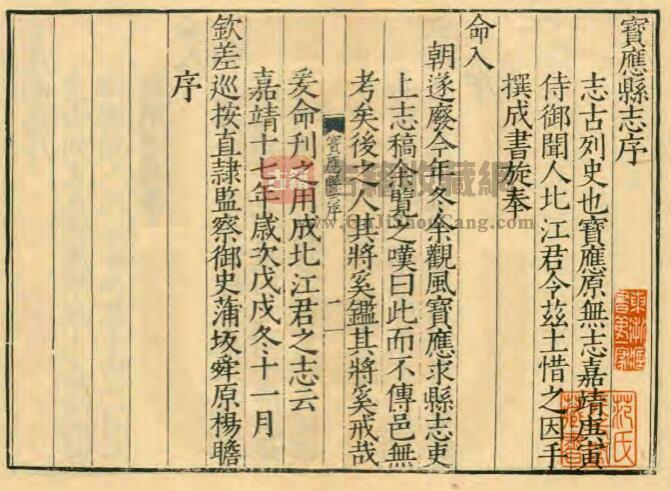 寶應縣志序
志古列史也寶應原無志嘉靖庚寅
侍御聞人北江君令茲土惜之因手
撰成書旋奉
命入
朝遂廢今年冬余觀風寶應求縣志吏
上志稿余覽之嘆曰此而不傳邑無
考矣後之人其將奚鑑其將奚戒哉
寶應縣序
一
爰命刊之用成北江君之志云
嘉靖十七年歲次戊戌冬十一月
欽差巡按直隸監察御史蒲坂舜原楊瞻
序
古籍收藏網
www.GuJiShouCang.com
范氏
藏書